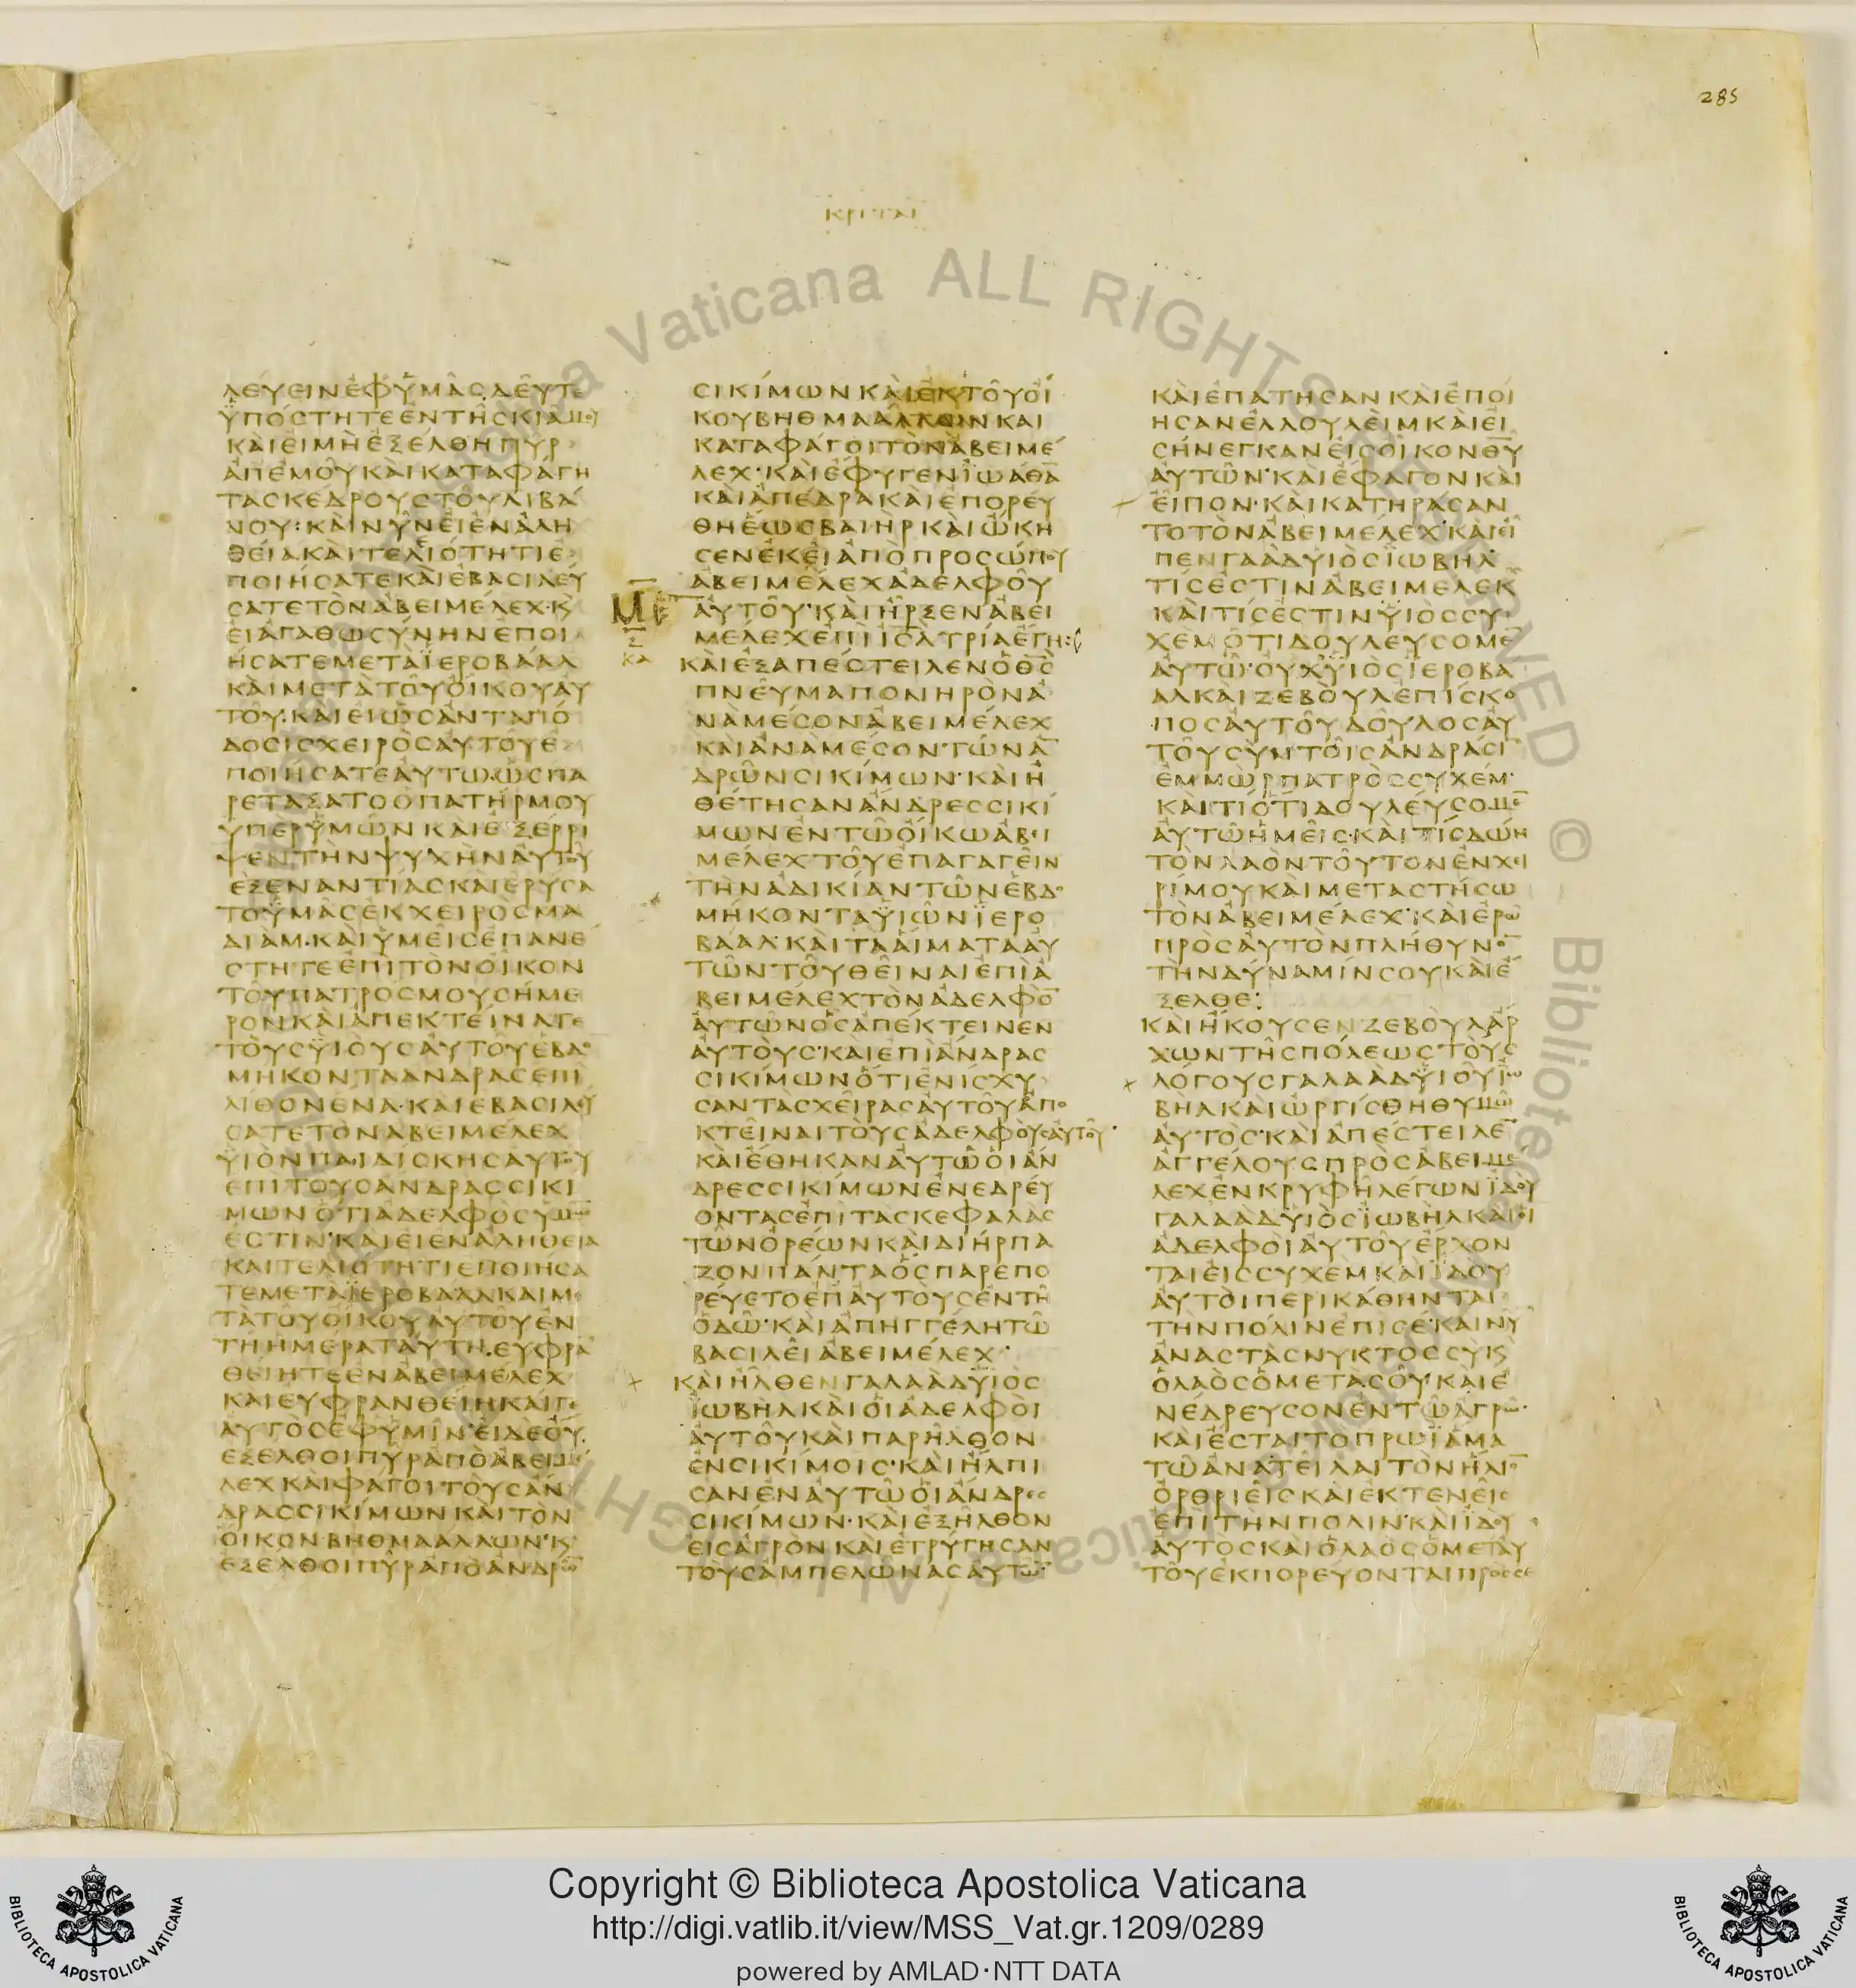 285
ΚΡΙΤΑΙ
ΛΕΥΕΙΝΕΦΥΜΑΣΔΕΥΤΕ
ΥΠΟΣΤΗΤΕΕΝΤΗΣΚΙΑΜΟΥ
ΚΑΙΕΙΜΗΕΞΕΛΘΗΠΥΡ
ΑΠΕΜΟΥΚΑΙΚΑΤΑΦΑΓΗ
ΤΑΣΚΕΔΡΟΥΣΤΟΥΛΙΒΑ
ΝΟΥ:ΚΑΙΝΥΝΕΙΕΝΑΛΗ
ΘΕΙΑΚΑΙΤΕΛΙΟΤΗΤΙΕ
ΠΟΙΗΣΑΤΕΚΑΙΕΒΑΣΙΛΕΥ
ΣΑΤΕΤΟΝΑΒΕΙΜΕΛΕΧ·Κ
ΕΙΑΓΑΘΩΣΥΝΗΝΕΠΟΙ
ΗΣΑΤΕΜΕΤΑΪΕΡΟΒΑΑΛ
ΚΑΙΜΕΤΑΤΟΥΟΙΚΟΥΑΥ
ΤΟΥ·ΚΑΙΕΙΩΣΑΝΤΑΠΟ
ΔΟΣΙΣΧΕΙΡΟΣΑΥΤΟΥΕ
ΠΟΙΗΣΑΤΕΑΥΤΩ·ΩΣΠΑ
ΡΕΤΑΞΑΤΟΟΠΑΤΗΡΜΟΥ
ΥΠΕΡΥΜΩΝΚΑΙΕΞΕΡΡΙ
ΨΕΝΤΗΝΨΥΧΗΝΑΥΤΟΥ
ΕΞΕΝΑΝΤΙΑΣΚΑΙΕΡΥΣΑ
ΤΟΥΜΑΣΕΚΧΕΙΡΟΣΜΑ
ΔΙΑΜ·ΚΑΙΥΜΕΙΣΕΠΑΝΕ
ΣΤΗΤΕΕΠΙΤΟΝΟΙΚΟΝ
ΤΟΥΠΑΤΡΟΣΜΟΥΣΗΜΕ
ΡΟΝΚΑΙΑΠΕΚΤΕΙΝΑΤΕ
ΤΟΥΣΥΙΟΥΣΑΥΤΟΥΕΒΔΟ
ΜΗΚΟΝΤΑΑΝΔΡΑΣΕΠΙ
ΛΙΘΟΝΕΝΑ·ΚΑΙΕΒΑΣΙΛΕΥ
ΣΑΤΕΤΟΝΑΒΕΙΜΕΛΕΧ
ΥΙΟΝΠΑΙΔΙΣΚΗΣΑΥΤΟΥ
ΕΠΙΤΟΥΣΑΝΔΡΑΣΣΙΚΙ
ΜΩΝΟΤΙΑΔΕΛΦΟΣΥΜΩΝ
ΕΣΤΙΝ·ΚΑΙΕΙΕΝΑΛΗΘΕΙΑ
ΚΑΙΤΕΛΙΟΤΗΤΙΕΠΟΙΗΣΑ
ΤΕΜΕΤΑΪΕΡΟΒΑΑΛΚΑΙΜΕ
ΤΑΤΟΥΟΙΚΟΥΑΥΤΟΥΕΝ
ΤΗΗΜΕΡΑΤΑΥΤΗ·ΕΥΦΡΑ
ΘΕΙΗΤΕΕΝΑΒΕΙΜΕΛΕΧ
ΚΑΙΕΥΦΡΑΝΘΕΙΗΚΑΙΓΕ
ΑΥΤΟΣΕΦΥΜΙΝ·ΕΙΔΕΟΥ
ΕΞΕΛΘΟΙΠΥΡΑΠΟΑΒΕΙΜΕ
ΛΕΧΚΑΙΦΑΓΟΙΤΟΥΣΑΝ
ΔΡΑΣΣΙΚΙΜΩΝΚΑΙΤΟΝ
ΟΙΚΟΝΒΗΘΜΑΑΛΛΩΝ·Κ
ΕΞΕΛΘΟΙΠΥΡΑΠΟΑΝΔΡΩ̅
ΣΙΚΙΜΩΝΚΑΙΕΚΤΟΥΟΙ
ΚΟΥΒΗΘΜΑΑΛΛΩΝΚΑΙ
ΚΑΤΑΦΑΓΟΙΤΟΝΑΒΕΙΜΕ
ΛΕΧ·ΚΑΙΕΦΥΓΕΝΪΩΑΘΑ̅
ΚΑΙΑΠΕΔΡΑΚΑΙΕΠΟΡΕΥ
ΘΗΕΩΣΒΑΙΗΡΚΑΙΩΚΗ
ΣΕΝΕΚΕΙΑΠΟΠΡΟΣΩΠΟΥ
ΑΒΕΙΜΕΛΕΧΑΔΕΛΦΟΥ
ΑΥΤΟΥ·ΚΑΙΗΡΞΕΝΑΒΕΙ
ΜΕΛΕΧΕΠΙΙΣΛΤΡΙΑΕΤΗ:
ΚΑΙΕΞΑΠΕΣΤΕΙΛΕΝΟΘΣ̅
ΠΝΕΥΜΑΠΟΝΗΡΟΝΑ
ΝΑΜΕΣΟΝΑΒΕΙΜΕΛΕΧ
ΚΑΙΑΝΑΜΕΣΟΝΤΩΝΑ̅
ΔΡΩΝΣΙΚΙΜΩΝ·ΚΑΙΗ
ΘΕΤΗΣΑΝΑΝΔΡΕΣΣΙΚΙ
ΜΩΝΕΝΤΩΟΙΚΩΑΒΕΙ
ΜΕΛΕΧΤΟΥΕΠΑΓΑΓΕΙΝ
ΤΗΝΑΔΙΚΙΑΝΤΩΝΕΒΔΟ
ΜΗΚΟΝΤΑΫΙΩΝΪΕΡΟ
ΒΑΑΛ·ΚΑΙΤΑΑΙΜΑΤΑΑΥ
ΤΩΝΤΟΥΘΕΙΝΑΙΕΠΙΑ
ΒΕΙΜΕΛΕΧΤΟΝΑΔΕΛΦΟ̅
ΑΥΤΩΝΟΣΑΠΕΚΤΕΙΝΕΝ
ΑΥΤΟΥΣ·ΚΑΙΕΠΙΑΝΔΡΑΣ
ΣΙΚΙΜΩΝΟΤΙΕΝΙΣΧΥ
ΣΑΝΤΑΣΧΕΙΡΑΣΑΥΤΟΥΑΠΟ
ΚΤΕΙΝΑΙΤΟΥΣΑΔΕΛΦΟΥΣΑΥΤΟΥ·
ΚΑΙΕΘΗΚΑΝΑΥΤΩΟΙΑΝ
ΔΡΕΣΣΙΚΙΜΩΝΕΝΕΔΡΕΥ
ΟΝΤΑΣΕΠΙΤΑΣΚΕΦΑΛΑΣ
ΤΩΝΟΡΕΩΝΚΑΙΔΙΗΡΠΑ
ΖΟΝΠΑΝΤΑΟΣΠΑΡΕΠΟ
ΡΕΥΕΤΟΕΠΑΥΤΟΥΣΕΝΤΗ
ΟΔΩ·ΚΑΙΑΠΗΓΓΕΛΗΤΩ
ΒΑΣΙΛΕΙΑΒΕΙΜΕΛΕΧ·
ΚΑΙΗΛΘΕΝΓΑΛΑΑΔΥΙΟΣ
ΪΩΒΗΛΚΑΙΟΙΑΔΕΛΦΟΙ
ΑΥΤΟΥΚΑΙΠΑΡΗΛΘΟΝ
ΕΝΣΙΚΙΜΟΙΣ·ΚΑΙΗΛΠΙ
ΣΑΝΕΝΑΥΤΩΟΙΑΝΔΡΕΣ
ΣΙΚΙΜΩΝ·ΚΑΙΕΞΗΛΘΟΝ
ΕΙΣΑΓΡΟΝΚΑΙΕΤΡΥΓΗΣΑΝ
ΤΟΥΣΑΜΠΕΛΩΝΑΣΑΥΤΩ̅
ΚΑΙΕΠΑΤΗΣΑΝΚΑΙΕΠΟΙ
ΗΣΑΝΕΛΛΟΥΛΕΙΜΚΑΙΕΙ
ΣΗΝΕΓΚΑΝΕΙΣΟΙΚΟΝΘΥ̅
ΑΥΤΩΝ·ΚΑΙΕΦΑΓΟΝΚΑΙ
ΕΠΙΟΝ·ΚΑΙΚΑΤΗΡΑΣΑΝ
ΤΟΤΟΝΑΒΕΙΜΕΛΕΧ·ΚΑΙΕΙ
ΠΕΝΓΑΑΔΥΙΟΣΪΩΒΗΛ·
ΤΙΣΕΣΤΙΝΑΒΕΙΜΕΛΕΚ
ΚΑΙΤΙΣΕΣΤΙΝΫΙΟΣΣΥ
ΧΕΜΟΤΙΔΟΥΛΕΥΣΟΜΕ̅
ΑΥΤΩ·ΟΥΧΥΙΟΣΪΕΡΟΒΑ
ΑΛΚΑΙΖΕΒΟΥΛΕΠΙΣΚΟ
ΠΟΣΑΥΤΟΥΔΟΥΛΟΣΑΥ
ΤΟΥΣΥΝΤΟΙΣΑΝΔΡΑΣΙ̅
ΕΜΜΩΡΠΑΤΡΟΣΣΥΧΕΜ·
ΚΑΙΤΙΟΤΙΔΟΥΛΕΥΣΟΜΕ̅
ΑΥΤΩΗΜΕΙΣ·ΚΑΙΤΙΣΔΩΗ
ΤΟΝΛΑΟΝΤΟΥΤΟΝΕΝΧΕΙ
ΡΙΜΟΥΚΑΙΜΕΤΑΣΤΗΣΩ
ΤΟΝΑΒΕΙΜΕΛΕΧ·ΚΑΙΕΡΩ
ΠΡΟΣΑΥΤΟΝΠΛΗΘΥΝΟ̅
ΤΗΝΔΥΝΑΜΙΝΣΟΥΚΑΙΕ
ΞΕΛΘΕ:
ΚΑΙΗΚΟΥΣΕΝΖΕΒΟΥΛΑΡ
ΧΩΝΤΗΣΠΟΛΕΩΣΤΟΥΣ
ΛΟΓΟΥΣΓΑΛΑΑΔΥΙΟΥΪΩ
ΒΗΛΚΑΙΩΡΓΙΣΘΗΘΥΜΩ
ΑΥΤΟΣ·ΚΑΙΑΠΕΣΤΕΙΛΕ̅
ΑΓΓΕΛΟΥΣΠΡΟΣΑΒΕΙΜΕ
ΛΕΧΕΝΚΡΥΦΗΛΕΓΩΝΪΔΟΥ
ΓΑΛΑΑΔΥΙΟΣΪΩΒΗΛΚΑΙΟΙ
ΑΔΕΛΦΟΙΑΥΤΟΥΕΡΧΟΝ
ΤΑΙΕΙΣΣΥΧΕΜΚΑΙΪΔΟΥ
ΑΥΤΟΙΠΕΡΙΚΑΘΗΝΤΑΙ
ΤΗΝΠΟΛΙΝΕΠΙΣΕ·ΚΑΙΝΥ̅
ΑΝΑΣΤΑΣΝΥΚΤΟΣΣΥΚ
ΟΛΑΟΣΟΜΕΤΑΣΟΥ·ΚΑΙΕ
ΝΕΔΡΕΥΣΟΝΕΝΤΩΑΓΡΩ·
ΚΑΙΕΣΤΑΙΤΟΠΡΩΪΑΜΑ
ΤΩΑΝΑΤΕΙΛΑΙΤΟΝΗΛΙΟ̅
ΟΡΘΡΙΕΙΣΚΑΙΕΚΤΕΝΕΙΣ
ΕΠΙΤΗΝΠΟΛΙΝ·ΚΑΙΪΔΟΥ
ΑΥΤΟΣΚΑΙΟΛΑΟΣΟΜΕΤΑΥ
ΤΟΥΕΚΠΟΡΕΥΟΝΤΑΙΠΡΟΣΣΕ
Copyright © Biblioteca Apostolica Vaticana
http://digi.vatlib.it/view/MSS_Vat.gr.1209/0289
powered by AMLAD·NTT DATA
BIBLIOTECA APOSTOLICA VATICANA
BIBLIOTECA APOSTOLICA VATICANA